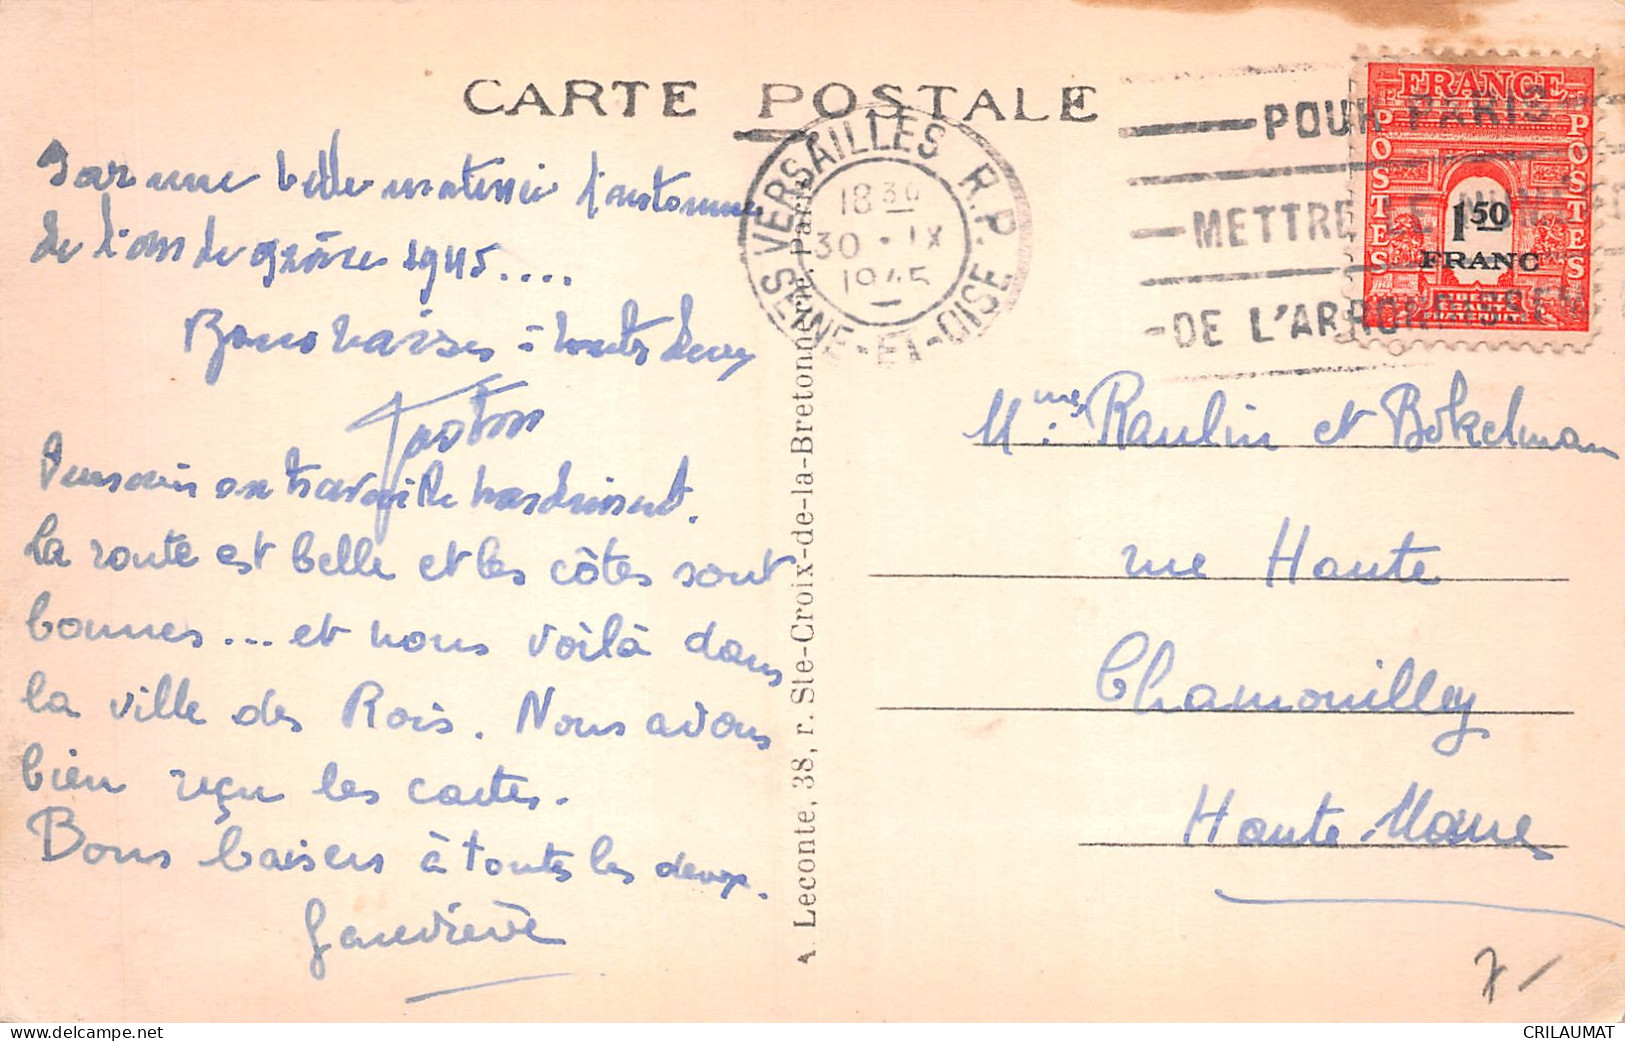 CARTE POSTALE
Par une belle matinée d'automne
de l'an de grâce 1945....
Bons baisers à toutes deux
Gaston
on travaille
La route est belle et les côtes sont
bonnes... et nous voilà dans
la ville des Rois. Nous avons
bien reçu les cartes.
Bons baisers à toutes les deux.
Geneviève
A. Leconte, 38, r. Ste-Croix-de-la-Bretonnerie, Paris
VERSAILLES R.P.
18 30
30 - IX
1945
SEINE-ET-OISE
POUR PARIS
METTRE LE NUMERO
DE L'ARRONDISSEM
FRANCE
POSTES
POSTES
1.50
FRANC
Mmes Raulin et Bökelman
rue Haute
Chamouilley
Haute Marne
7/
CRILAUMAT